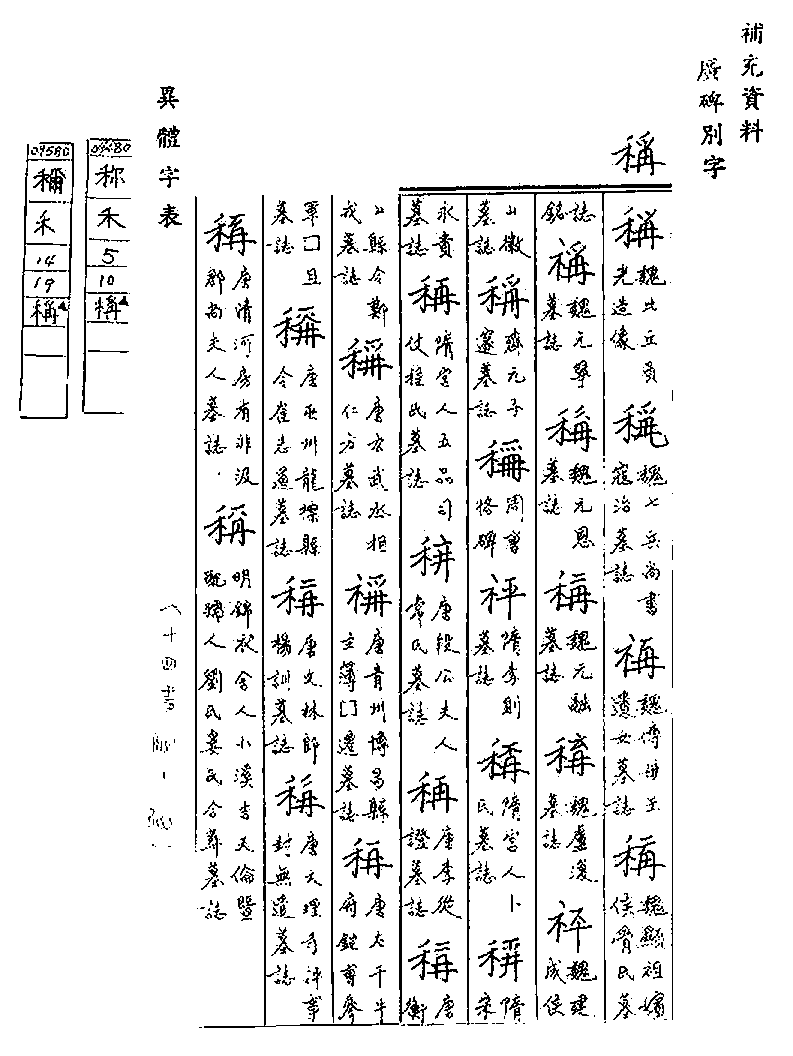 補充資料
廣碑別字
稱
稱 魏比丘員光造像 稱 魏七兵尚書寇治墓誌 稱 魏傅母王遺女墓誌 稱 魏顯祖嬪侯骨氏墓
誌銘 稱 魏元擧墓誌 稱 魏元恩墓誌 稱 魏元融墓誌 稱 魏盧浚墓誌 秤 魏建成侯
山徽墓誌 稱 齊元子邃墓誌 稱 周曹恪碑 秤 隋李則墓誌 稱 隋宮人卜氏墓誌 稱 隋宋
永貴墓誌 稱 隋宮人五品司仗程氏墓誌 稱 唐段公夫人韋氏墓誌 稱 唐李從證墓誌 稱 唐衡
山縣令鄭戎墓誌 稱 唐右武丞相仁方墓誌 稱 唐青州博昌縣主薄□遷墓誌 稱 唐左千牛府鎧曹參
軍□旦墓誌 稱 唐巫州龍標縣令崔志道墓誌 稱 唐文林郎楊訓墓誌 稱 唐大理寺評事封無遺墓誌
稱 唐清河房有非汲郡尚夫人墓誌 稱 明錦衣舍人小溪李天倫暨配孺人劉氏婁氏合葬墓誌
異體字表
称
禾
5
10
稱
07580
穪
禾
14
19
稱